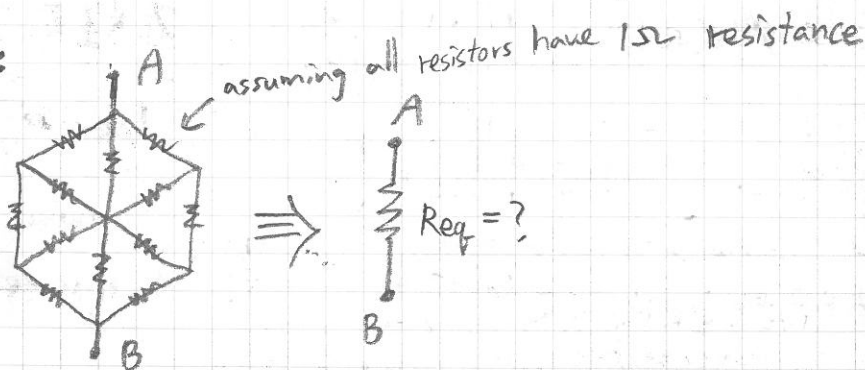 A
assuming all resistors have 1Ω resistance
A
Req = ?
B
B